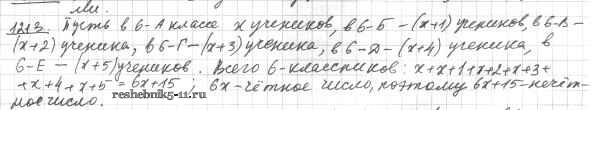 ли.
1213. Пусть в 6-А классе x учеников, в 6-Б – (x+1) учеников, в 6-В –
(x+2) ученика, в 6-Г – (x+3) ученика, в 6-Д – (x+4) ученика, в
6-Е – (x+5) учеников. Всего 6-классников: x+x+1+x+2+x+3+
+x+4+x+5 = 6x+15; 6x – чётное число, поэтому 6x+15 – нечёт-
reshebnik5-11.ru
ное число.